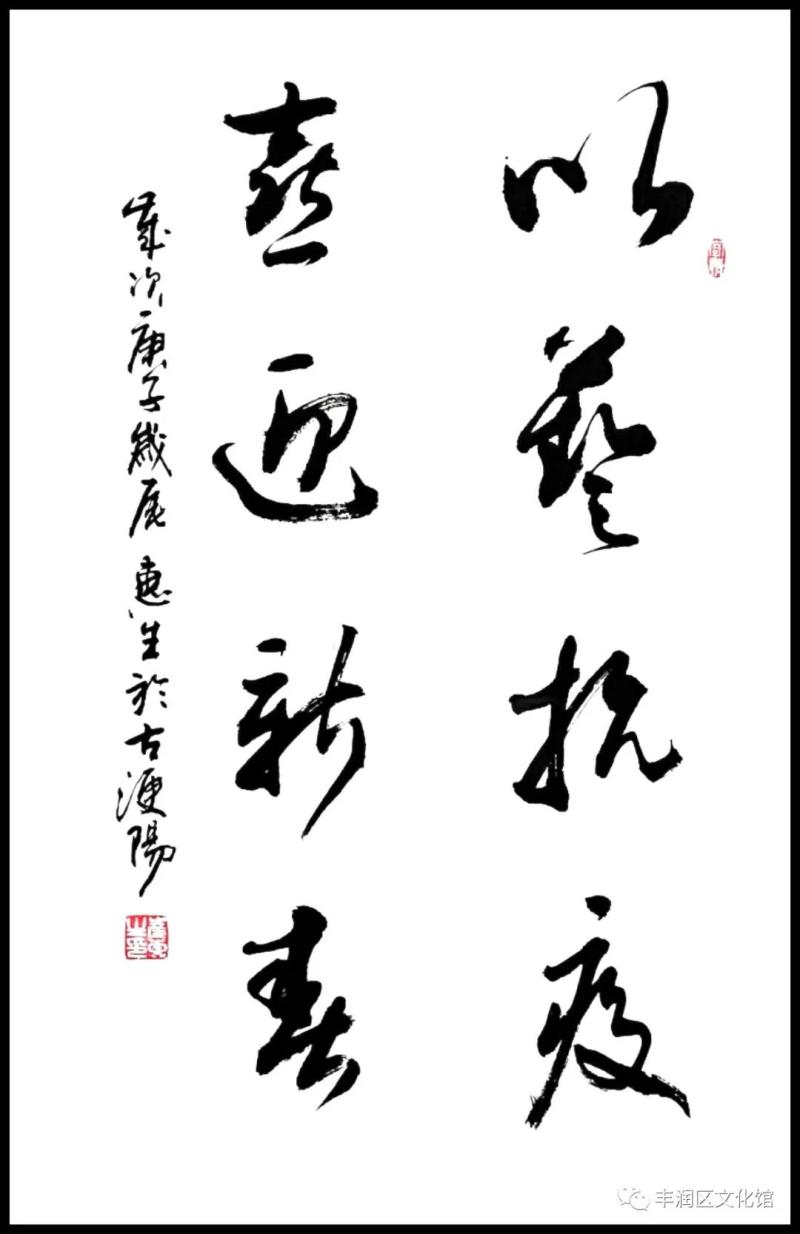 以藝抗疫
喜迎新春
歲次庚子歲尾 惠生於古浭陽
丰润区文化馆